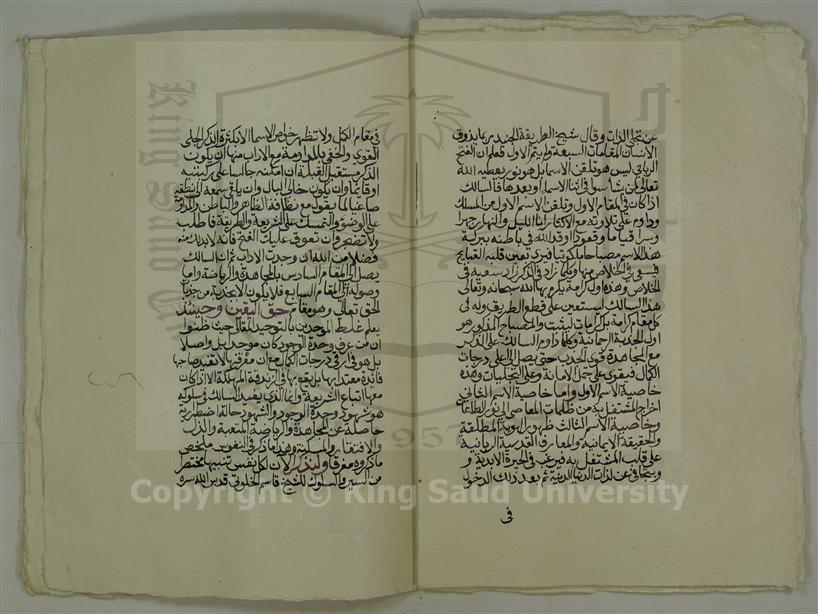 عن تجلي الذات وقال شيخ الطريقة الجنيد ربما يذوق
الانسان المقامات السبعة ولم يتم الاول فعلم ان الفتح
الرباني ليس هو تلقن الاسما بل هو نور يعطيه الله
تعالى لمن شا سوا في اثنا الاسما او بعدها فالسالك
اذا كان في المقام الاول وتلقن الاسم الاول من المسلك
وداوم على تلاوته مع الاكثار انا الليل والنهار جهرا
وسرا قياما وقعودا اوقد الله في باطنه ببركة
هذا الاسم مصباحا ملكوتيا فيرى بعين قلبه القبايح
فيسعى في الخلاص منها وكلما زاد في الذكر زاد سعيه في
الخلاص وهذه اول كرامة يكرم بها الله سبحانه وتعالى
هذا السالك ليستعين على قطع الطريق وله في
كل مقام كرامة بل كرامات ليثبت والمصباح المذكور هو
اول الجذبة الرحمانية وكلما داوم السالك على الذكر
مع المجاهدة قوي الجذب حتى يصل الى اعلى درجات
الكمال فيقوى على حمل الامانة وعلى التجليات وهذه
خاصية الاسم الاول واما خاصية الاسم الثاني
اخراج المشتغل به من ظلمات المعاصي الى نور الطاعات
وخاصية الاسم الثالث ظهور الهوية المطلقة
والحقيقة الايمانية والمعارف القدسية الربانية
على قلب المشتغل به فيرغب في الحيوة الابدية و
ويتجافى عن لذات الدنيا الدنية ثم بعد ذلك الدخول
في
في مقام الكل ولا تظهر خواص الاسما الا بكثرة الذكر الجلي
القوي والخفي بالمداومة مع الاداب منها ان يكون
الذاكر مستقبل القبلة ان امكنه جالسا على ركبتيه
او قائما وان يكون خالي البال وان يلقي سمعه الى نطقه
صاغيا لما يقول مع نظافة الظاهر والباطن والدوام
على الوضوء والتمسك على الشريعة والطريقة فاطلب
ولا تضجر وان تعوق عليك الفتح فانه لابد لك منه
فضلا من الله ان وجدت الاداب ثم ان السالك
يصل الى المقام السادس بالمجاهدة والرياضة واما
وصوله الى المقام السابع فلا يكون الا بجذبة من جذبات
الحق تعالى وهو مقام حق اليقين وحينئذ
يعلم غلط الموحدين بالتوحيد المقال حيث ظنوا
ان من عرف وحدة الوجود كان موحد بل واصلا
بل هو في ارقى درجات الكمال مع ان معرفتها لا تفيد صاحبها
فائدة معتد بها بل يقع بها في الزندقة المهلكة الا اذا كان
معها اتباع الشريعة وانما الذي يفيد السالك في سلوكه
هو شهود وحدة الوجود والشهود حالة اضطرارية
حاصلة عن المجاهدة والرياضة المتعبة والذل
والافتقار والمسكنة وهذا ما ذكر في النفوس ملخص
ما ذكروه مفرقا ولنذكر الآن لكل نفس تنبيها مختصر
من السير والسلوك للشيخ قاسم الخلوتي قدس الله سره
Copyright © King Saud University
1957